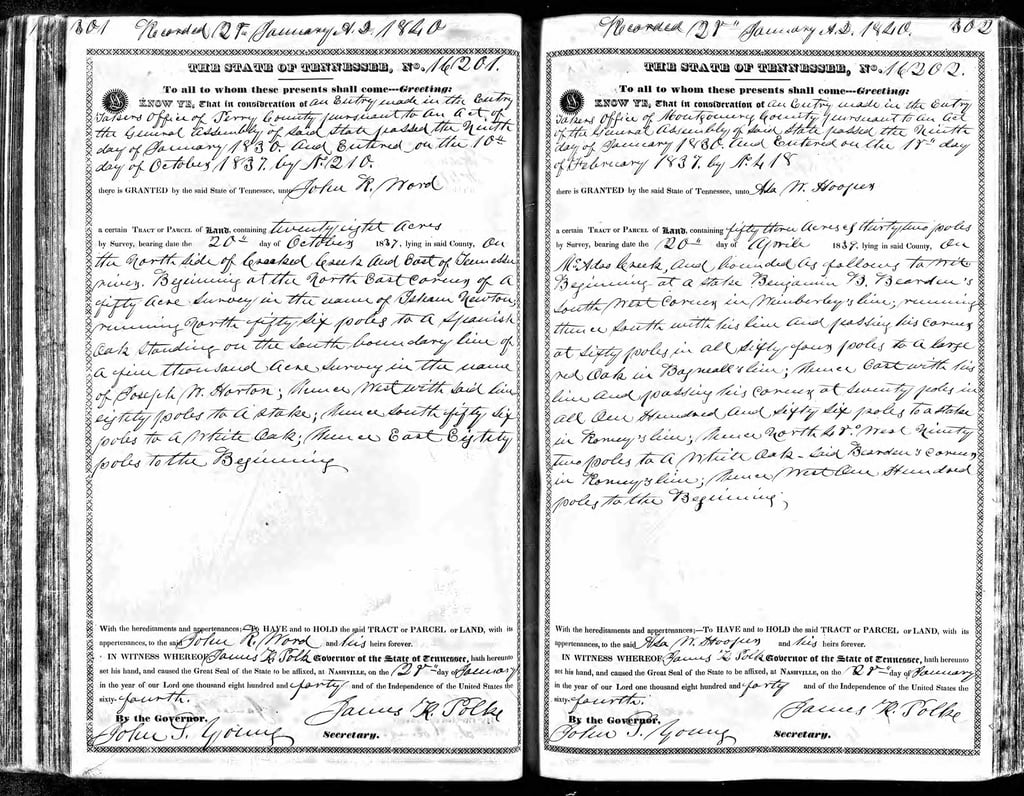 301 Recorded 12th January A.D. 1840
THE STATE OF TENNESSEE, No. 16201.
To all to whom these presents shall come---Greeting:
KNOW YE, That in consideration of an Entry made in the Entry
Takers Office of Perry County pursuant to an Act of
the General Assembly of said State passed the Ninth
day of January 1830 And Entered on the 10th
day of October 1837. by No 210.
there is GRANTED by the said State of Tennessee, unto John R. Word
a certain TRACT or PARCEL of Land, containing twenty eight Acres
by Survey, bearing date the 20th day of October 1837, lying in said County, On
the North side of Crooked Creek and East of Tennessee
river. Beginning at the North East corner of A
fifty Acre Survey in the name of Isham Newton,
running North fifty six poles to A Spanish
Oak standing on the south boundary line of
A five thousand Acre survey in the name
of Joseph W. Horton; thence West with said line
eighty poles to A stake; thence South fifty six
poles to A White Oak; thence East Eighty
poles to the Beginning
With the hereditaments and appertenances; To HAVE and to HOLD the said TRACT or PARCEL of LAND, with its
appertenances, to the said John R. Word and his heirs forever.
IN WITNESS WHEREOF James K Polk Governor of the State of Tennessee, hath hereunto
set his hand, and caused the Great Seal of the State to be affixed, at NASHVILLE, on the 12th day of January
in the year of our Lord one thousand eight hundred and forty and of the Independence of the United States the
sixty-fourth.
By the Governor, James K. Polk
John S. Young Secretary.
Recorded 12th January A.D. 1840. 302
THE STATE OF TENNESSEE, No. 16202.
To all to whom these presents shall come---Greeting:
KNOW YE, That in consideration of an Entry made in the Entry
Takers Office of Montgomery County pursuant to an Act
of the General Assembly of said State passed the Ninth
day of January 1830. And Entered on the day
of February 1837. by No. 418
there is GRANTED by the said State of Tennessee, unto Ada W. Hooper
a certain TRACT or PARCEL of Land, containing fifty three Acres & thirty two poles
by Survey, bearing date the 20th day of Aprile 1837, lying in said County, On
McAdos Creek, And bounded as follows to wit
Beginning at a stake Benjamin B. Bearden's
South West corner in Wimberley's line; running
thence South with his line and passing his corner
at sixty poles in all sixty four poles to a large
red Oak in line; thence East with his
line And passing his corner at seventy poles in
all One Hundred And sixty six poles to a stake
in line; thence North West Ninety
two poles to A White Oak said Bearden's corner
in line; thence West One Hundred
poles to the Beginning;
With the hereditaments and appertenances;—To HAVE and to HOLD the said TRACT or PARCEL of LAND, with its
appertenances, to the said Ada W. Hooper and his heirs forever.
IN WITNESS WHEREOF James K Polk Governor of the State of Tennessee, hath hereunto
set his hand, and caused the Great Seal of the State to be affixed, at NASHVILLE, on the 12th day of January
in the year of our Lord one thousand eight hundred and forty and of the Independence of the United States the
sixty-fourth.
By the Governor, James K. Polk
John S. Young Secretary.